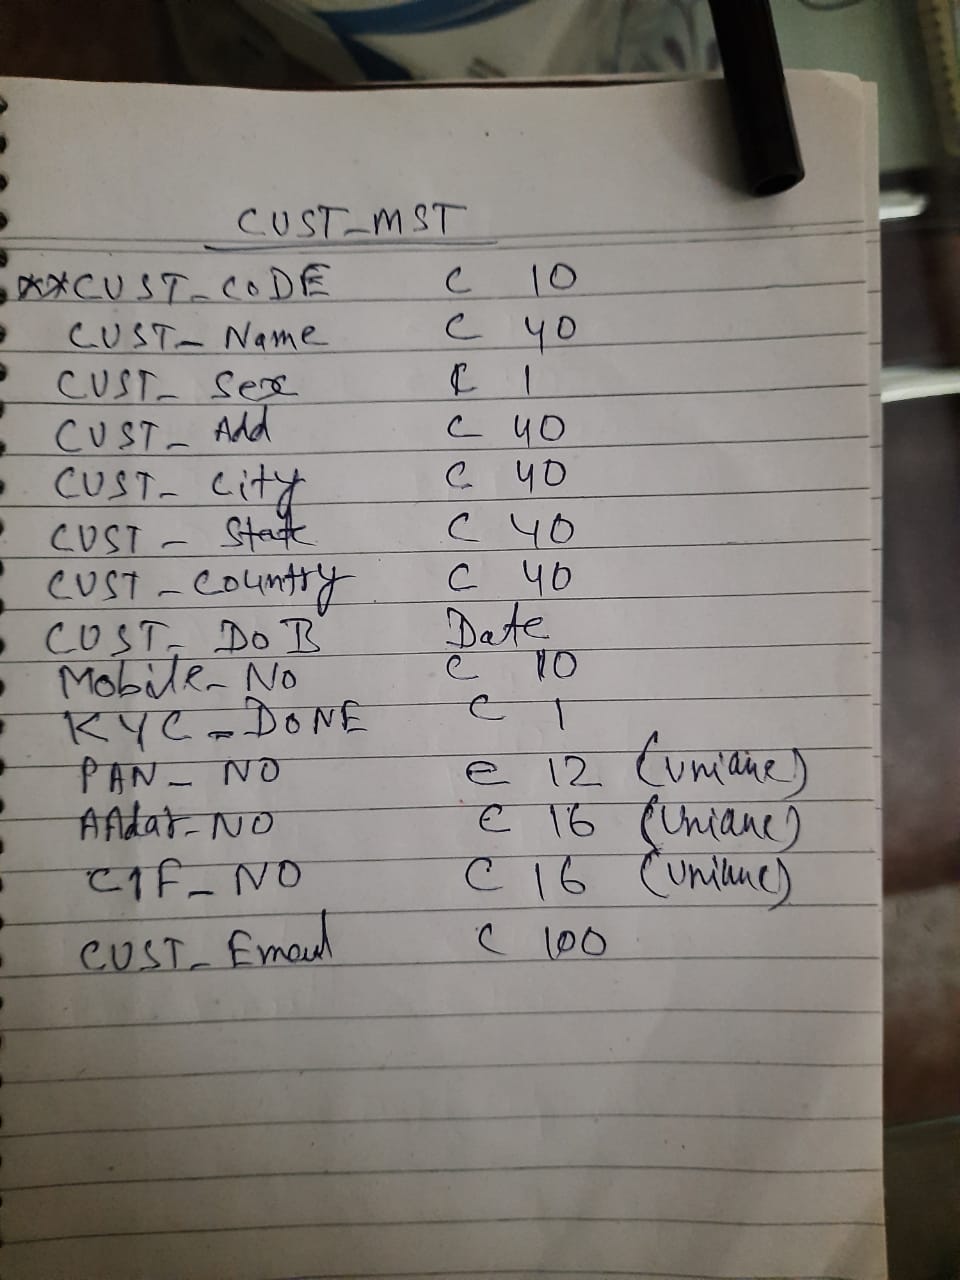 CUST_MST
**CUST_CODE C 10
CUST_Name C 40
CUST_Sex C 1
CUST_Add C 40
CUST_City C 40
CUST_State C 40
CUST_Country C 40
CUST_DoB Date
Mobile_No C 10
KYC_DONE C 1
PAN_NO C 12 (Unique)
AAdar_NO C 16 (Unique)
CIF_NO C 16 (Unique)
CUST_Email C 100